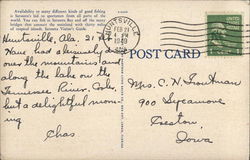 Availability or many different kinds of good fishing
is Sarasota's bid to sportsmen from all parts of the
world. You can fish in Sarasota Bay and off the many
bridges that connect the mainland with thirty miles
of tropical islands. Sarasota Visitor's Guide.
Huntsville, Ala. 21st
Have had a leisurely drive
over the mountains and
along the lake on the
Tennessee River. Cold
but a delightful morn
ing
Chas
HUNTSVILLE
FEB 21
4 PM
1949
ALA.
POST CARD
Mrs. C. N. Troutman
900 Sycamore
Creston
Iowa